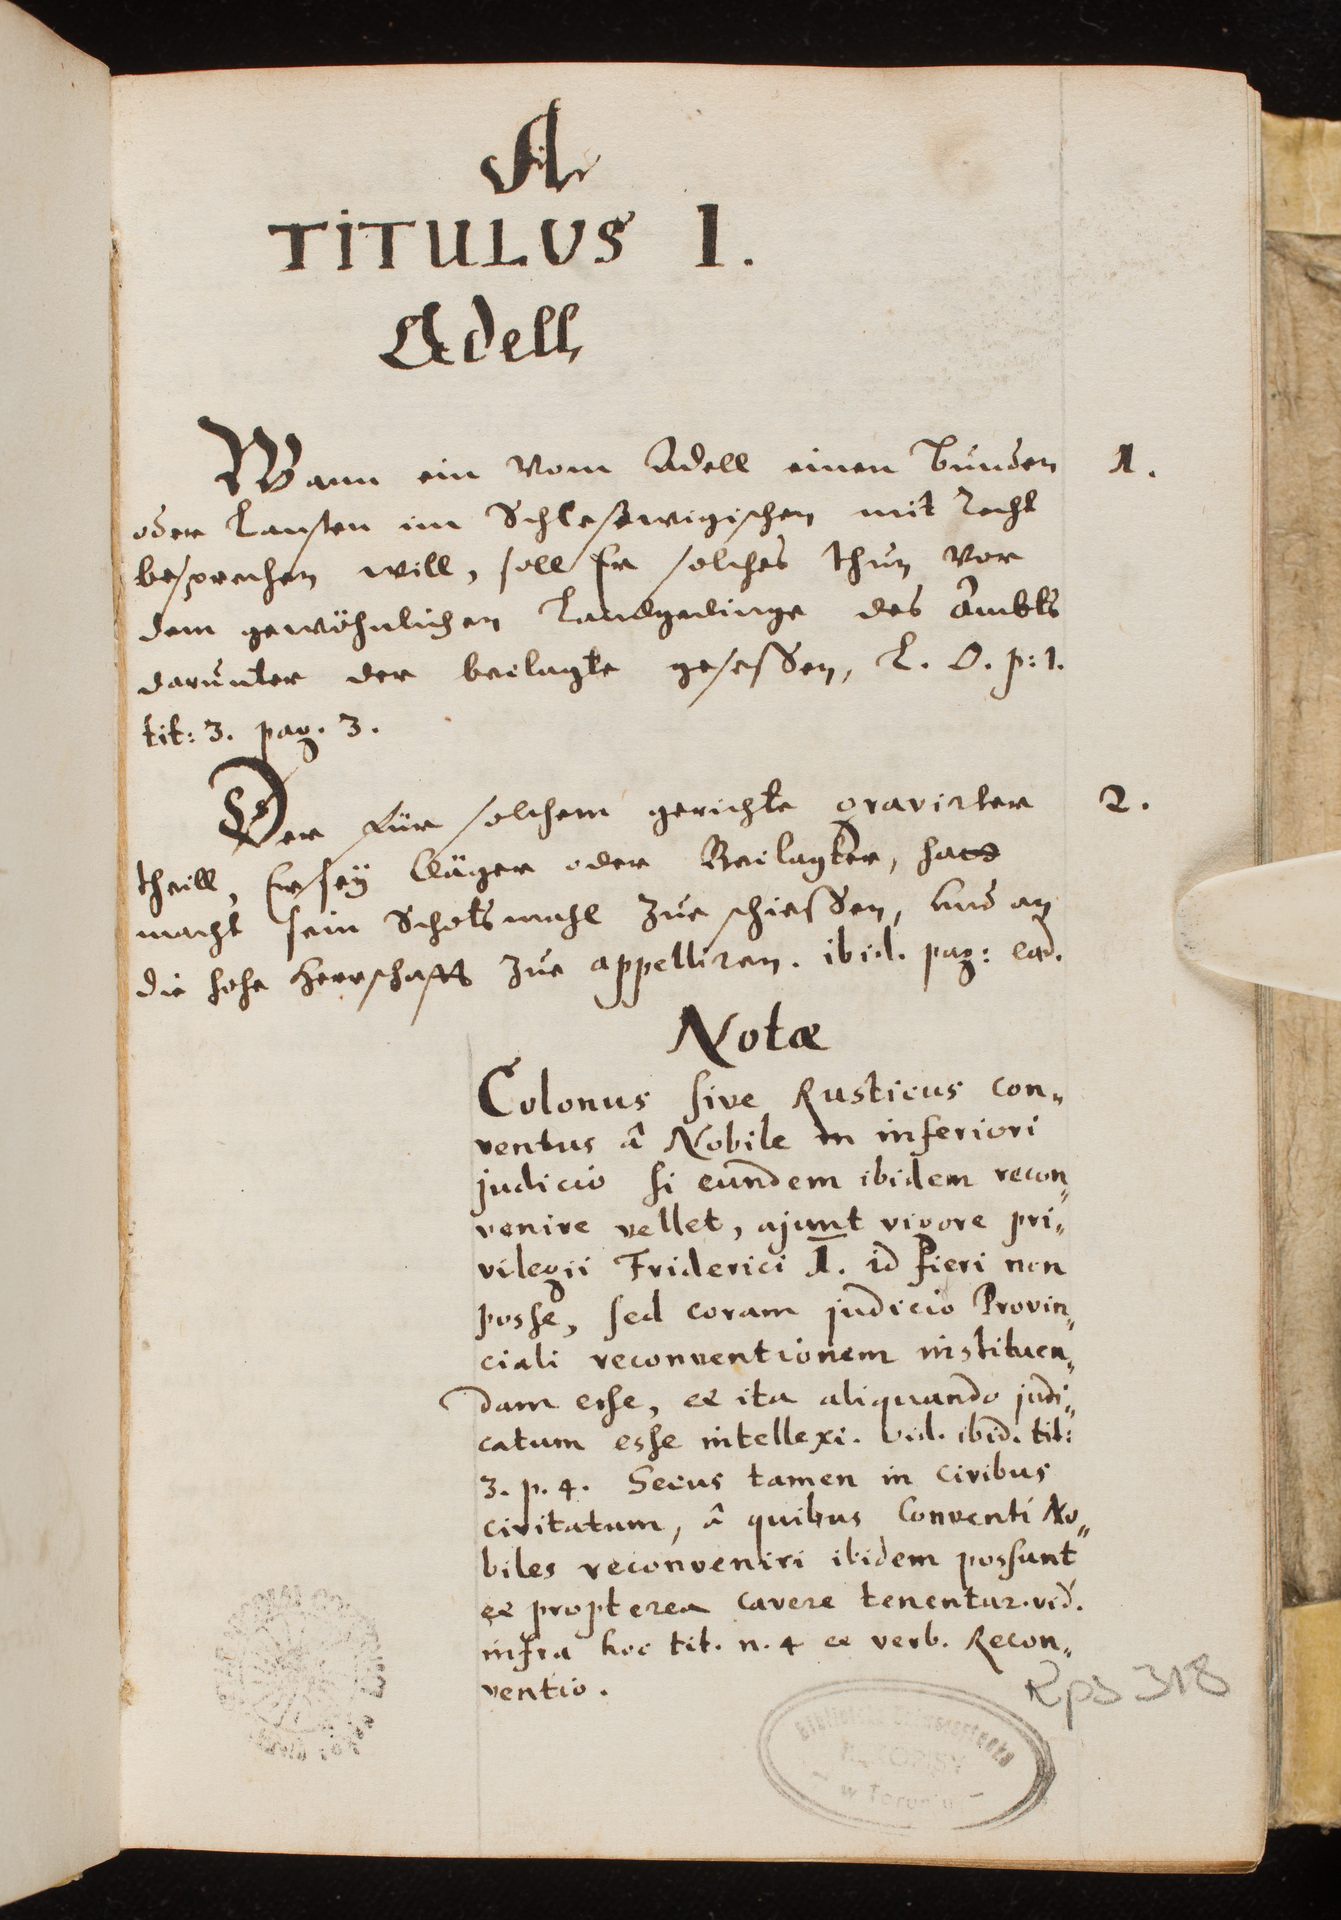 A
TITULUS 1.
Adell
Wann ein vom Adell einen Bunden 1.
oder Lansten im Schleßwigischen mit Recht
besprechen will, soll Er solches thun vor
dem gewöhnlichen Landgedinge des Ambts
darunter der beclagte gesessen, L. O. p: 1.
tit: 3. pag. 3.
Der für solchem gerichte gravirter 2.
theill, Er seÿ Cläger oder Beclagter, hat
macht sein Schotsmahl zue schiessen, und an
die hohe Herrschafft zue appelliren. ibid. pag: ead.
Notæ
Colonus sive Rusticus con„
ventus â Nobile in inferiori
judicio si eundem ibidem recon„
venire vellet, ajunt vigore pri„
vilegii Friderici 1. id fieri non
posse, sed coram judicio Provin„
ciali reconventionem instituen„
dam esse, et ita aliquando judi„
catum esse intellexi. vid. ibid. tit:
3. p. 4. Secus tamen in civibus
civitatum, â quibus Conventi No„
biles reconveniri ibidem possunt
et propterea cavere tenentur. vid.
infra hoc tit. n. 4 et verb. Recon„
ventio.
Rps 318
Biblioteka Uniwersytecka
RĘKOPISY
— w Toruniu —